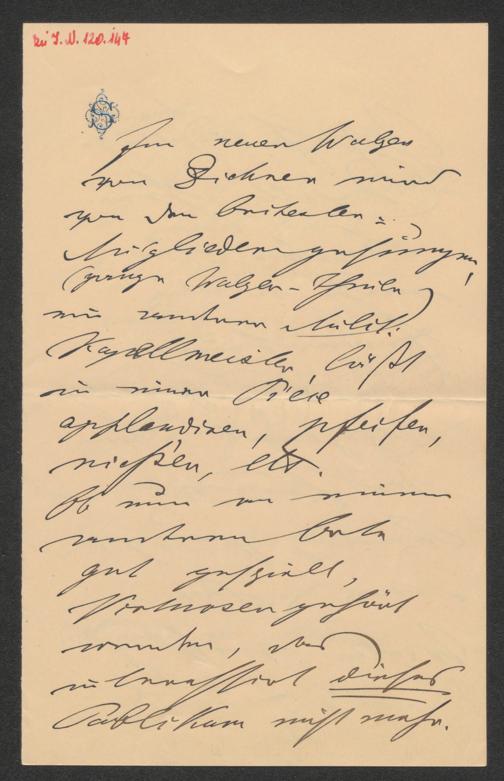 zu I.N. 120.147
S
Im neuen Walzer
von Ziehrer wird
von den Orchester=
Mitgliedern gesungen,
ganze Walzer-Theile,
ein anderer Milit.
Kapellmeister, läßt
in einer Piece
applaudiren, pfeifen,
nießen, ett.
Ob nun an einem
anderen Orte
gut gespielt,
Virtuosen gehört
werden, das
interessirt dieses
Publikum nicht mehr.